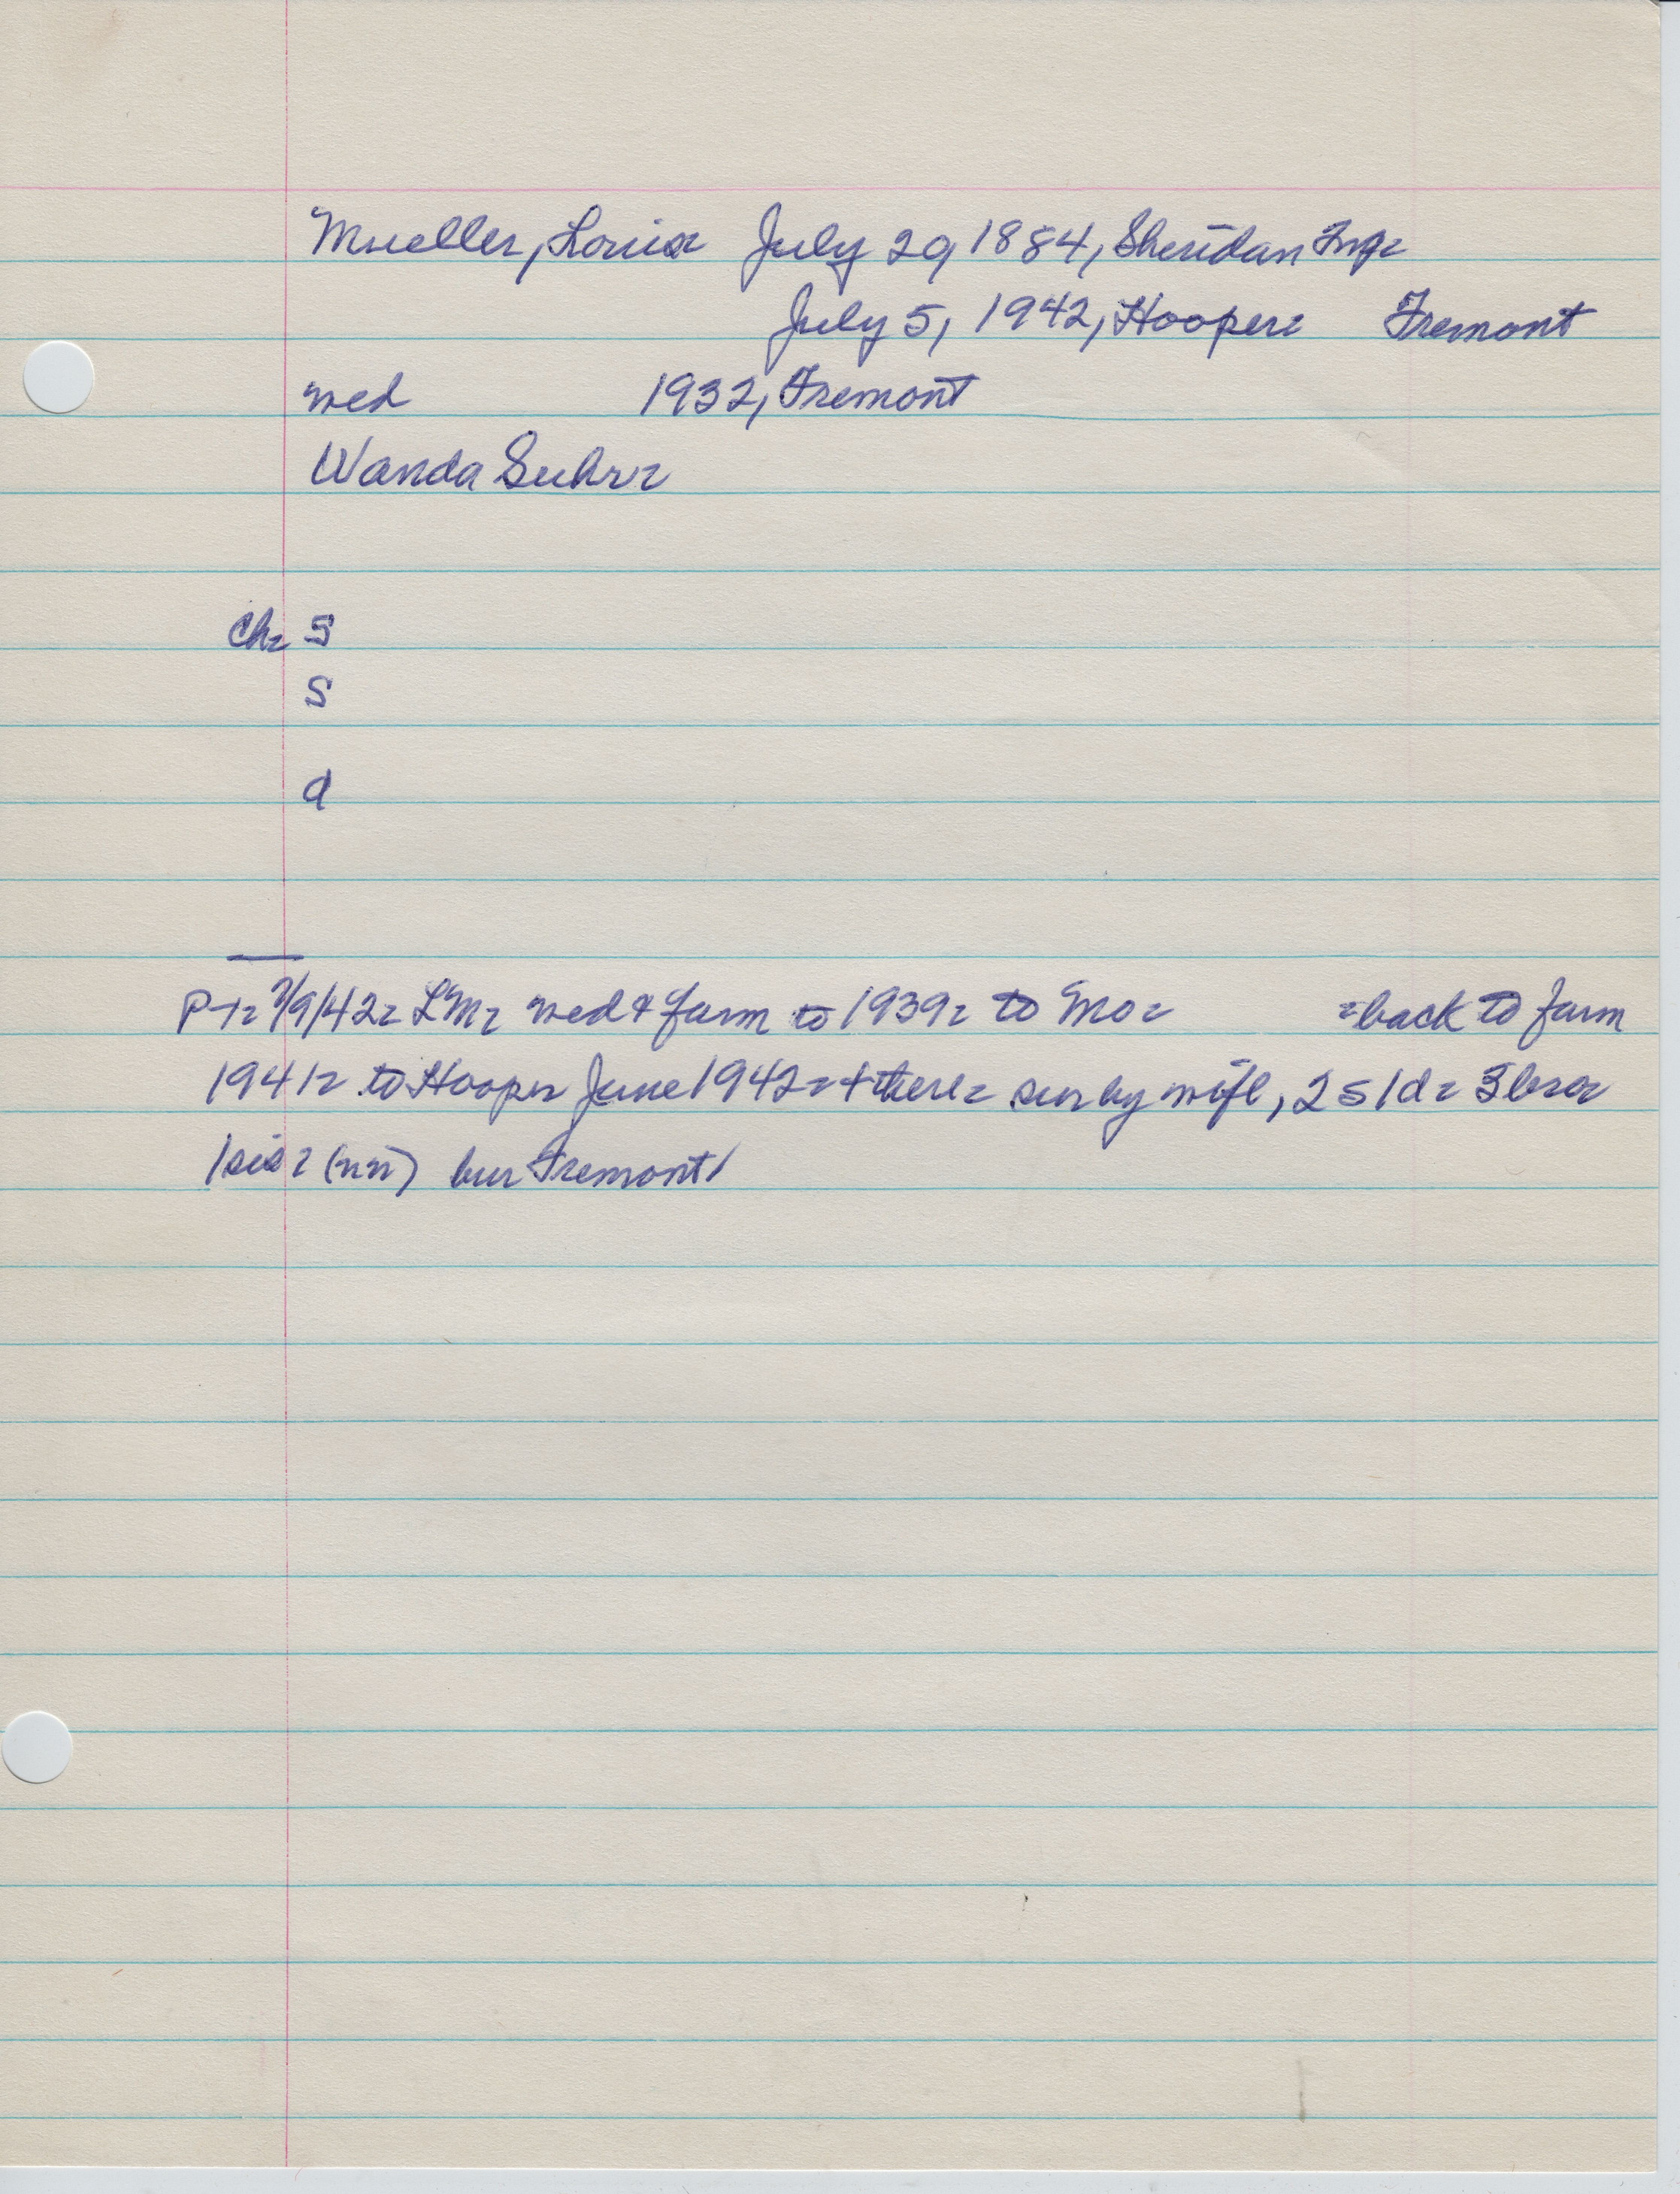 Mueller, Louis= July 29, 1884, Sheridan Twp=
July 5, 1942, Hooper= Fremont
wed 1932, Fremont
Wanda Suhr=
Ch= S
S
d
P-T= 7/9/42= LM= wed & farm to 1939= to Mo= =back to farm
1941= to Hooper June 1942= + there= sur by wife, 2 s 1 d= 3 bros
1 sis= (nn) bur Fremont/